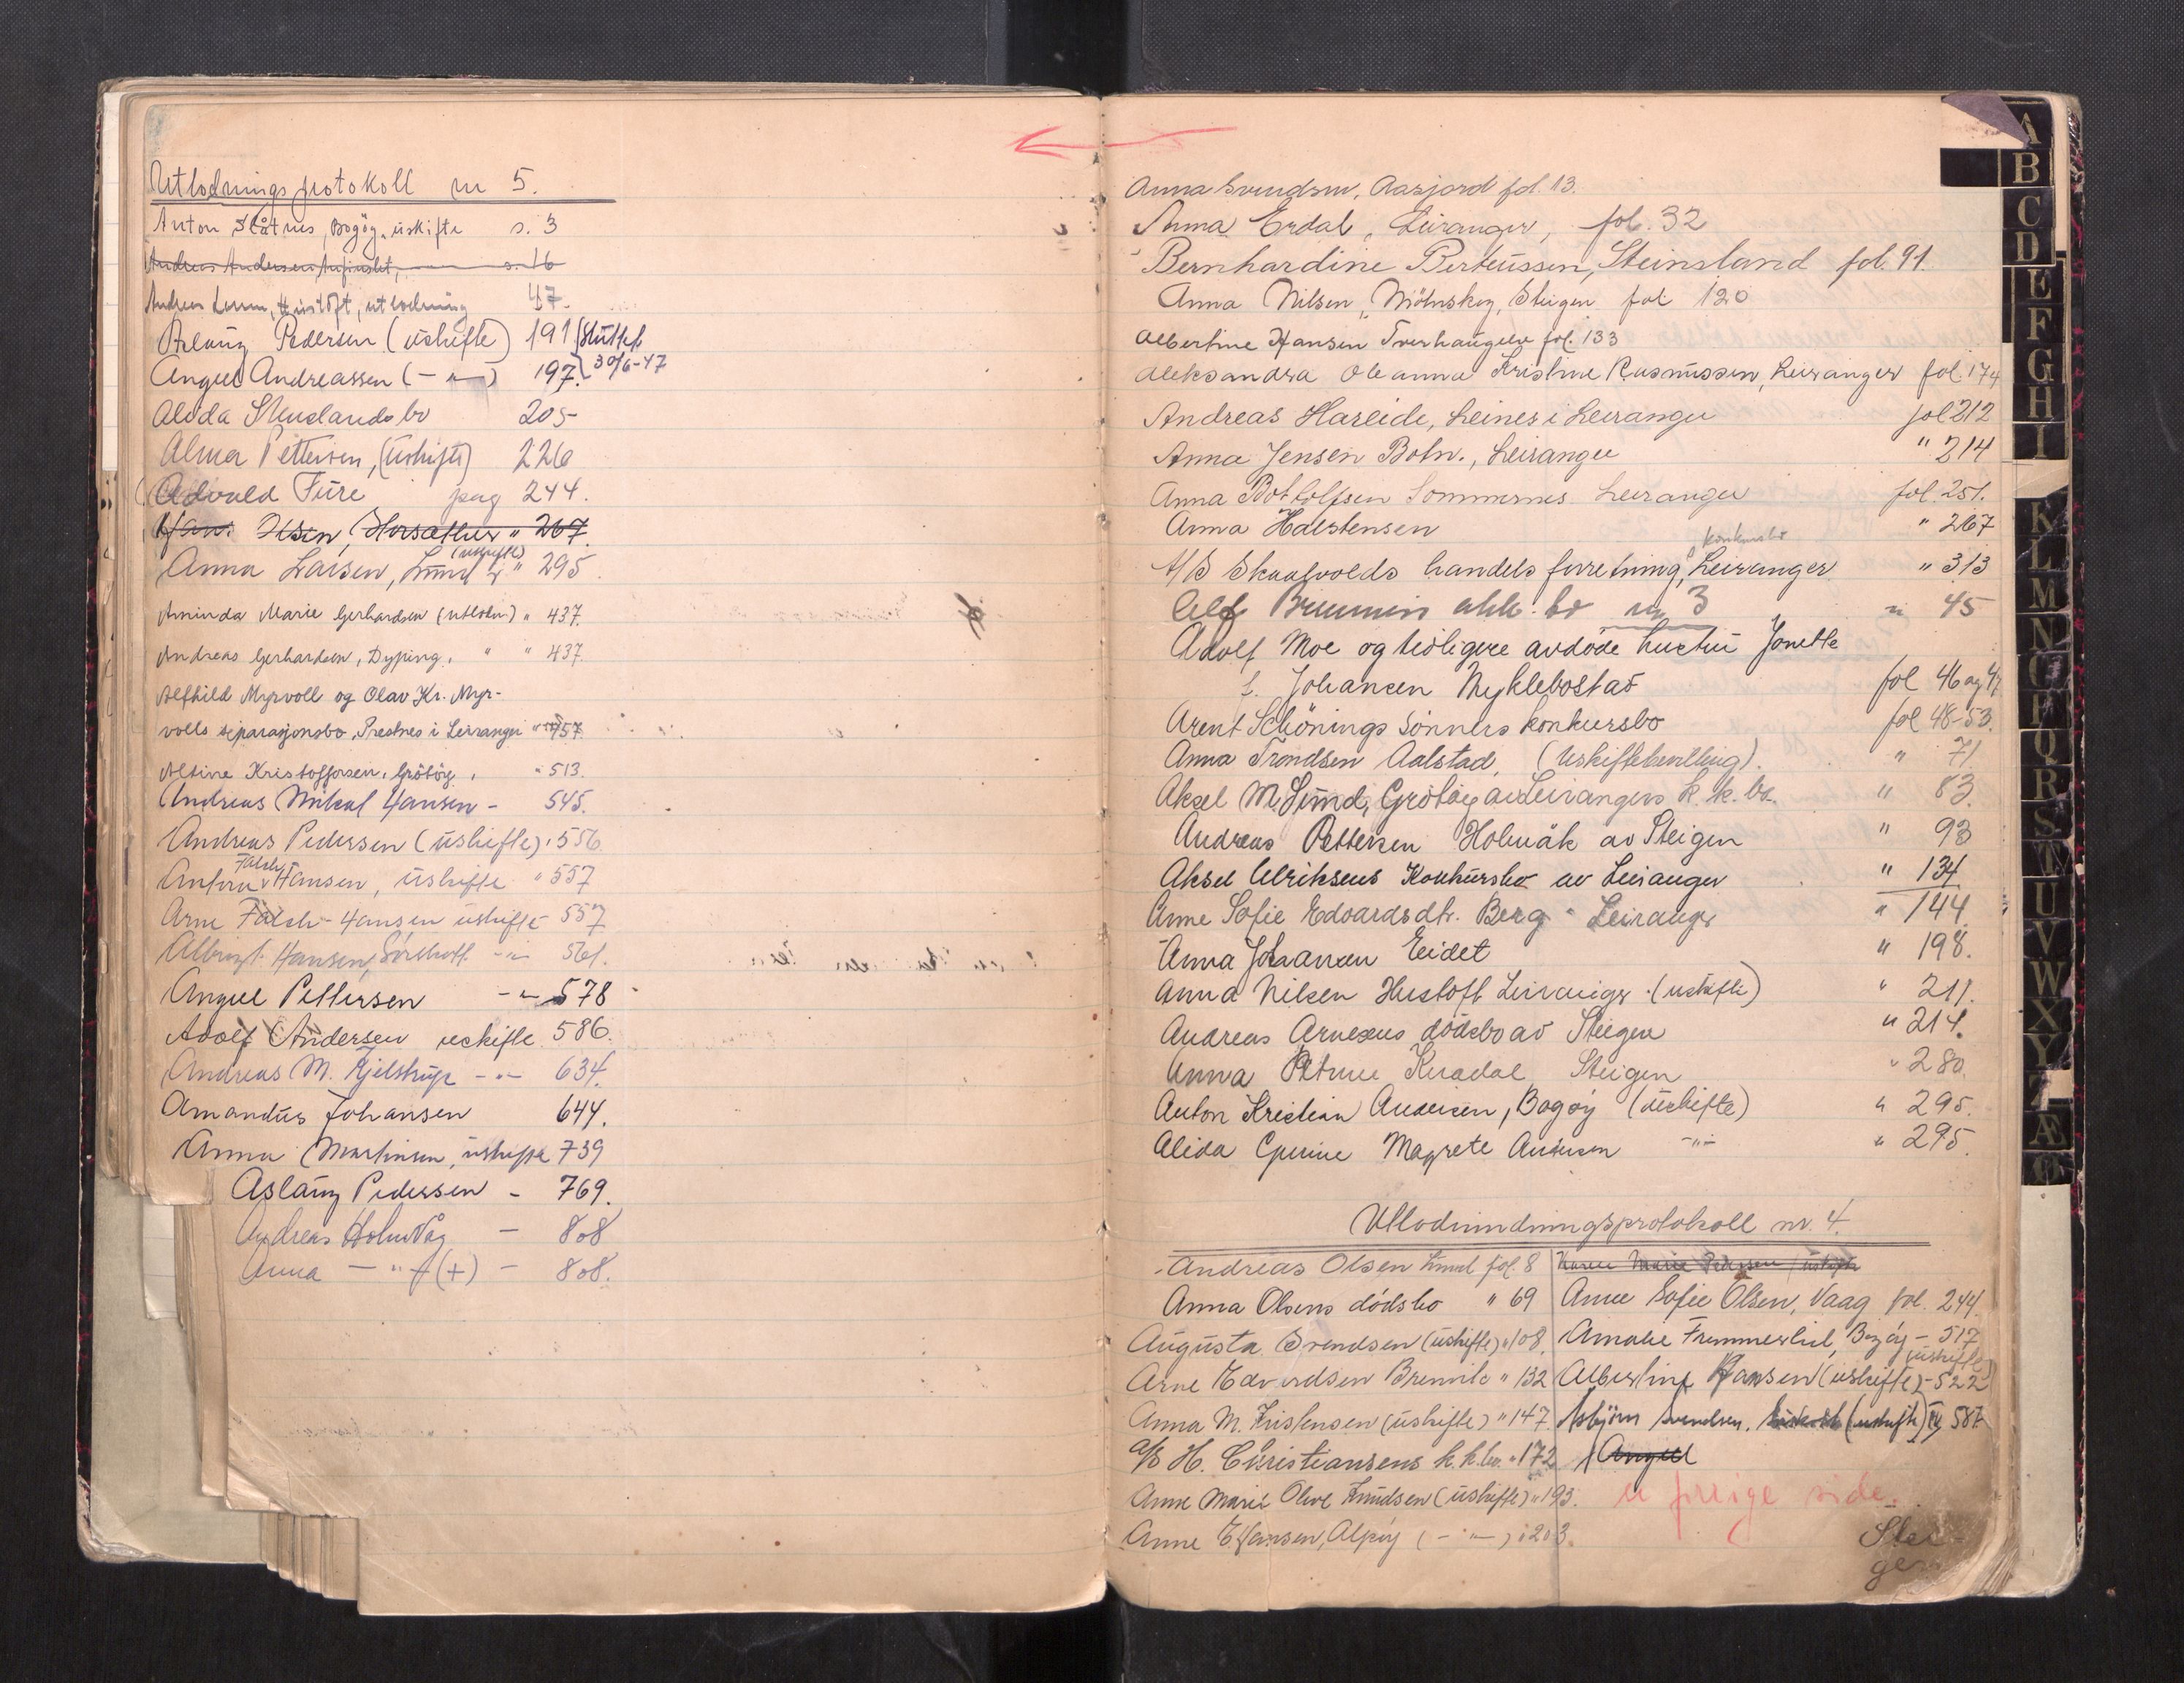 Utlodningsprotokoll nr 5.
Anton Slåtnes, Bogøy, uskifte s. 3
Andreas Andersen, s. 16
Andreas Lorum, Hustoft, utlodning 47
Aslaug Pedersen (uskifte) 191 Sluttet
Angel Andreassen (-"-) 197. 30/6-47
Alida Skuslands bo 205
Alma Pettersen, (uskifte) 226
Edvald Fure pag 244.
Hans Olsen, Horsæther " 267.
(uskifte)
Anna Larsen, Lund " 295
Aminda Marie Gerhardsen (utlodn.) " 437.
Andreas Gerhardsen, Dyping, " " 437
Alfhild Myrvoll og Olav Kr. Myr-
volls separasjonsbo, Prestnes i Leiranger " 457
Altine Kristoffersen, Grötöy, " 513.
Andreas Mikal Hansen - 545.
Andreas Pedersen (uskifte) . 556
Falch
Hansen, uskifte " 557
Arne Falch-Hansen uskifte - 557
Albrigt Hansen, -"- 561.
Angel Pettersen -"- 578
Adolf Andersen uskifte 586.
Andreas M. Kjelstrup -"- 634.
Amandus Johansen 644.
Anna Martinsen, uskifte 739
Aslaug Pedersen - 769.
Andreas Holmvåg - 808
Anna -"- (+) - 808.
Anna Svendsen, Aasjord fol. 13.
Anna Erdal, Leiranger, fol. 32
Bernhardine Berteussen, Steinsland fol. 91.
Anna Nilsen, Steigen fol 120
Albertine Hansen Tverhaugen fol. 133
Aleksandra Oleanna Kristine Rasmussen, Leiranger fol. 174
Andreas Hareide, Leines i Leiranger fol 212
Anna Jensen Botn., Leiranger " 214
Anna Botholfsen Sommernes Leiranger fol. 251.
Anna Halstensen " 267
konkursbo
A/S Skaalvolds handels forretning, Leiranger " 313
Alf Brunnes nr 3 " 45
Adolf Moe og tidligere avdöde hustru Jonette
f. Johansen Myklebostad fol 46 og 47
Arent Schönings Sönners konkursbo fol 48-53.
Anna Trondsen Aalstad, (Uskiftebevilling). " 71
Aksel M. Lund, Grötöy av Leirangers k.k. bo. " 83.
Andreas Pettersen Holmåk av Steigen " 93
Aksel Ulriksens Konkursbo av Leiranger " 134
Anne Sofie Edvardsdtr. Berg " Leiranger " 144.
Anna Johansen Eidet " 198.
Anna Nilsen Hustoft Leiranger (uskifte) " 211.
Andreas Arnesens dödsbo av Steigen " 214.
Anna Petrine Steigen " 280.
Anton Kristian Andersen, Bogøy (uskifte) " 295.
Alida Magrete Andersen -"- " 295.
Utlodningsprotokoll nr. 4.
Andreas Olsen Lund fol. 8
Anna Olsens dödsbo " 69
Augusta Svendsen (uskifte) " 108.
Arne Edvardsen Bremvik " 132
Anna M. Kristensen (uskifte) " 147.
A/S H. Christiansens k.k.bo. " 172
Anne Marie Olive Knudsen (uskifte) " 193.
Anne E. Hansen, Alpöy (-"-) " 203.
Karen Marie Pedersen (uskifte
Anne Sofie Olsen, Vaag fol. 244.
Amalie Frammerlid, Bogöy - 517
(uskifte)
Albertine Hansen (uskifte) - 522
Asbjörn Svendsen, (uskifte) 587
Angel
se forrige side.
Stei-
gen